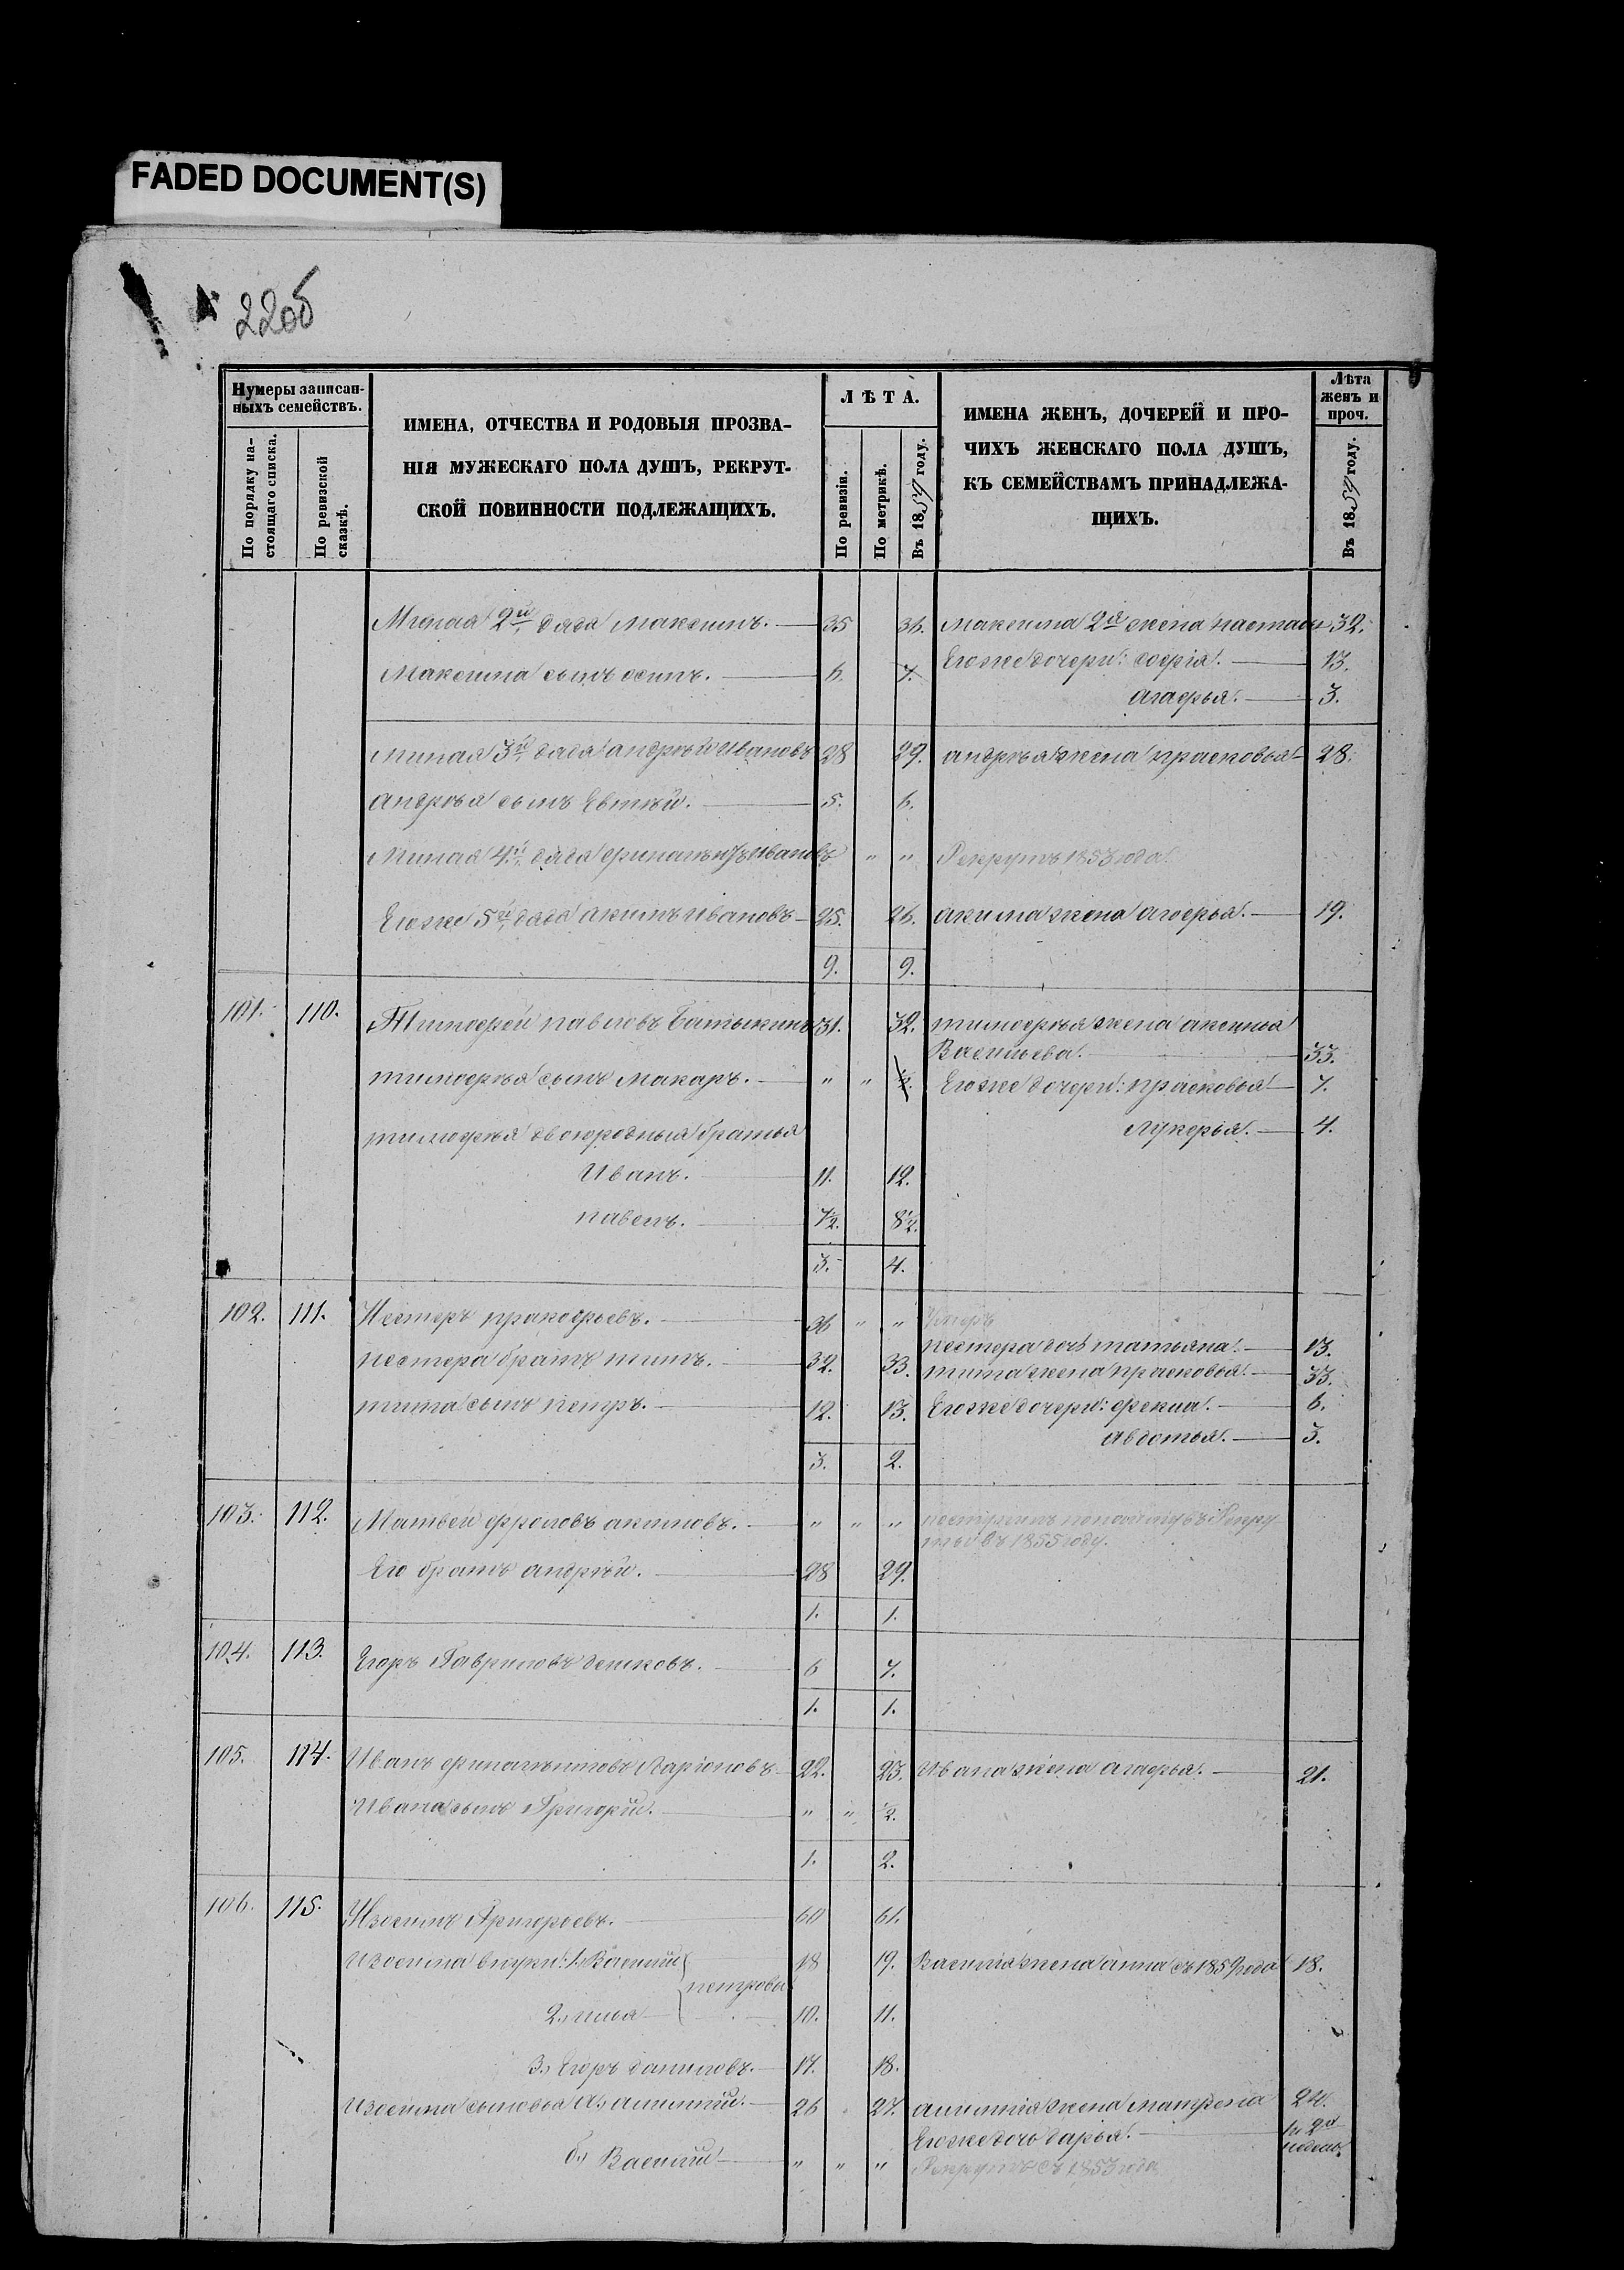 FADED DOCUMENT(S)
220б
Нумеры записан-
ныхъ семействъ.
По порядку на-
стоящаго списка.
По ревизской
сказкѣ.
ИМЕНА, ОТЧЕСТВА И РОДОВЫЯ ПРОЗВА-
НІЯ МУЖЕСКАГО ПОЛА ДУШЪ, РЕКРУТ-
СКОЙ ПОВИННОСТИ ПОДЛЕЖАЩИХЪ.
ЛѢТА.
По ревизіи.
По метрикѣ.
Въ 18 году.
ИМЕНА ЖЕНЪ, ДОЧЕРЕЙ И ПРО-
ЧИХЪ ЖЕНСКАГО ПОЛА ДУШЪ,
КЪ СЕМЕЙСТВАМЪ ПРИНАДЛЕЖА-
ЩИХЪ.
Лѣта
женъ и
проч.
Въ 18 году.
Миная 2й дядя Максимъ. 35 36. Максима 2я жена настасья 32.
Максима сынъ осипъ. 6. 7. Егоже дочери: софія. 13.
агафья. 3.
Миная 3й дядя андрѣй Ивановъ 28 29. андрѣя жена прасковья 28.
андрѣя сынъ Евтѣй. 5. 6.
Миная 4й дядя Ивановъ " " Рекрутъ 1853 года
Егоже 5й дядя акимъ Ивановъ 25. 26. акима жена агафья. 19.
9. 9.
101. 110. Тимофей павловъ 31. 32. тимофѣя жена аксинья
Васильева. 33.
тимофѣя сынъ макаръ. " " ½. Егоже дочери: прасковья 7.
тимофѣя двоюродныя братья лукерья. 4.
Иванъ. 11. 12.
павелъ. 7½. 8½.
3. 4.
102. 111. Нестеръ прокофьевъ. 36 " " умеръ
нестера дочь татьяна. 13.
нестера братъ титъ. 32. 33. тита жена прасковья. 33.
тита сынъ петръ. 12. 13. Егоже дочери: фекла. 6.
авдотья. 3.
3. 2.
103. 112. Матвей фроловъ акимовъ. " " "
въ 1855 году.
Его братъ андрѣй. 28 29.
1. 1.
104. 113. Егоръ Гавриловъ 6 7.
1. 1.
105. 114. Иванъ Ларіоновъ 22. 23. Ивана жена агафья. 21.
Ивана сынъ Григорій. " " ½.
1. 2.
106. 115. Изосимъ Григорьевъ. 60 61.
Изосима внуки: 1, Василій 18 19. Василія жена анна съ 1859 года 18.
петровы
2, илья 10. 11.
3, Егоръ даниловъ. 17. 18.
Изосима сыновья а, 26 27. жена 24.
Егоже дочь дарья. 2х недель
б, Василій " " " Рекрутъ съ 1853 года